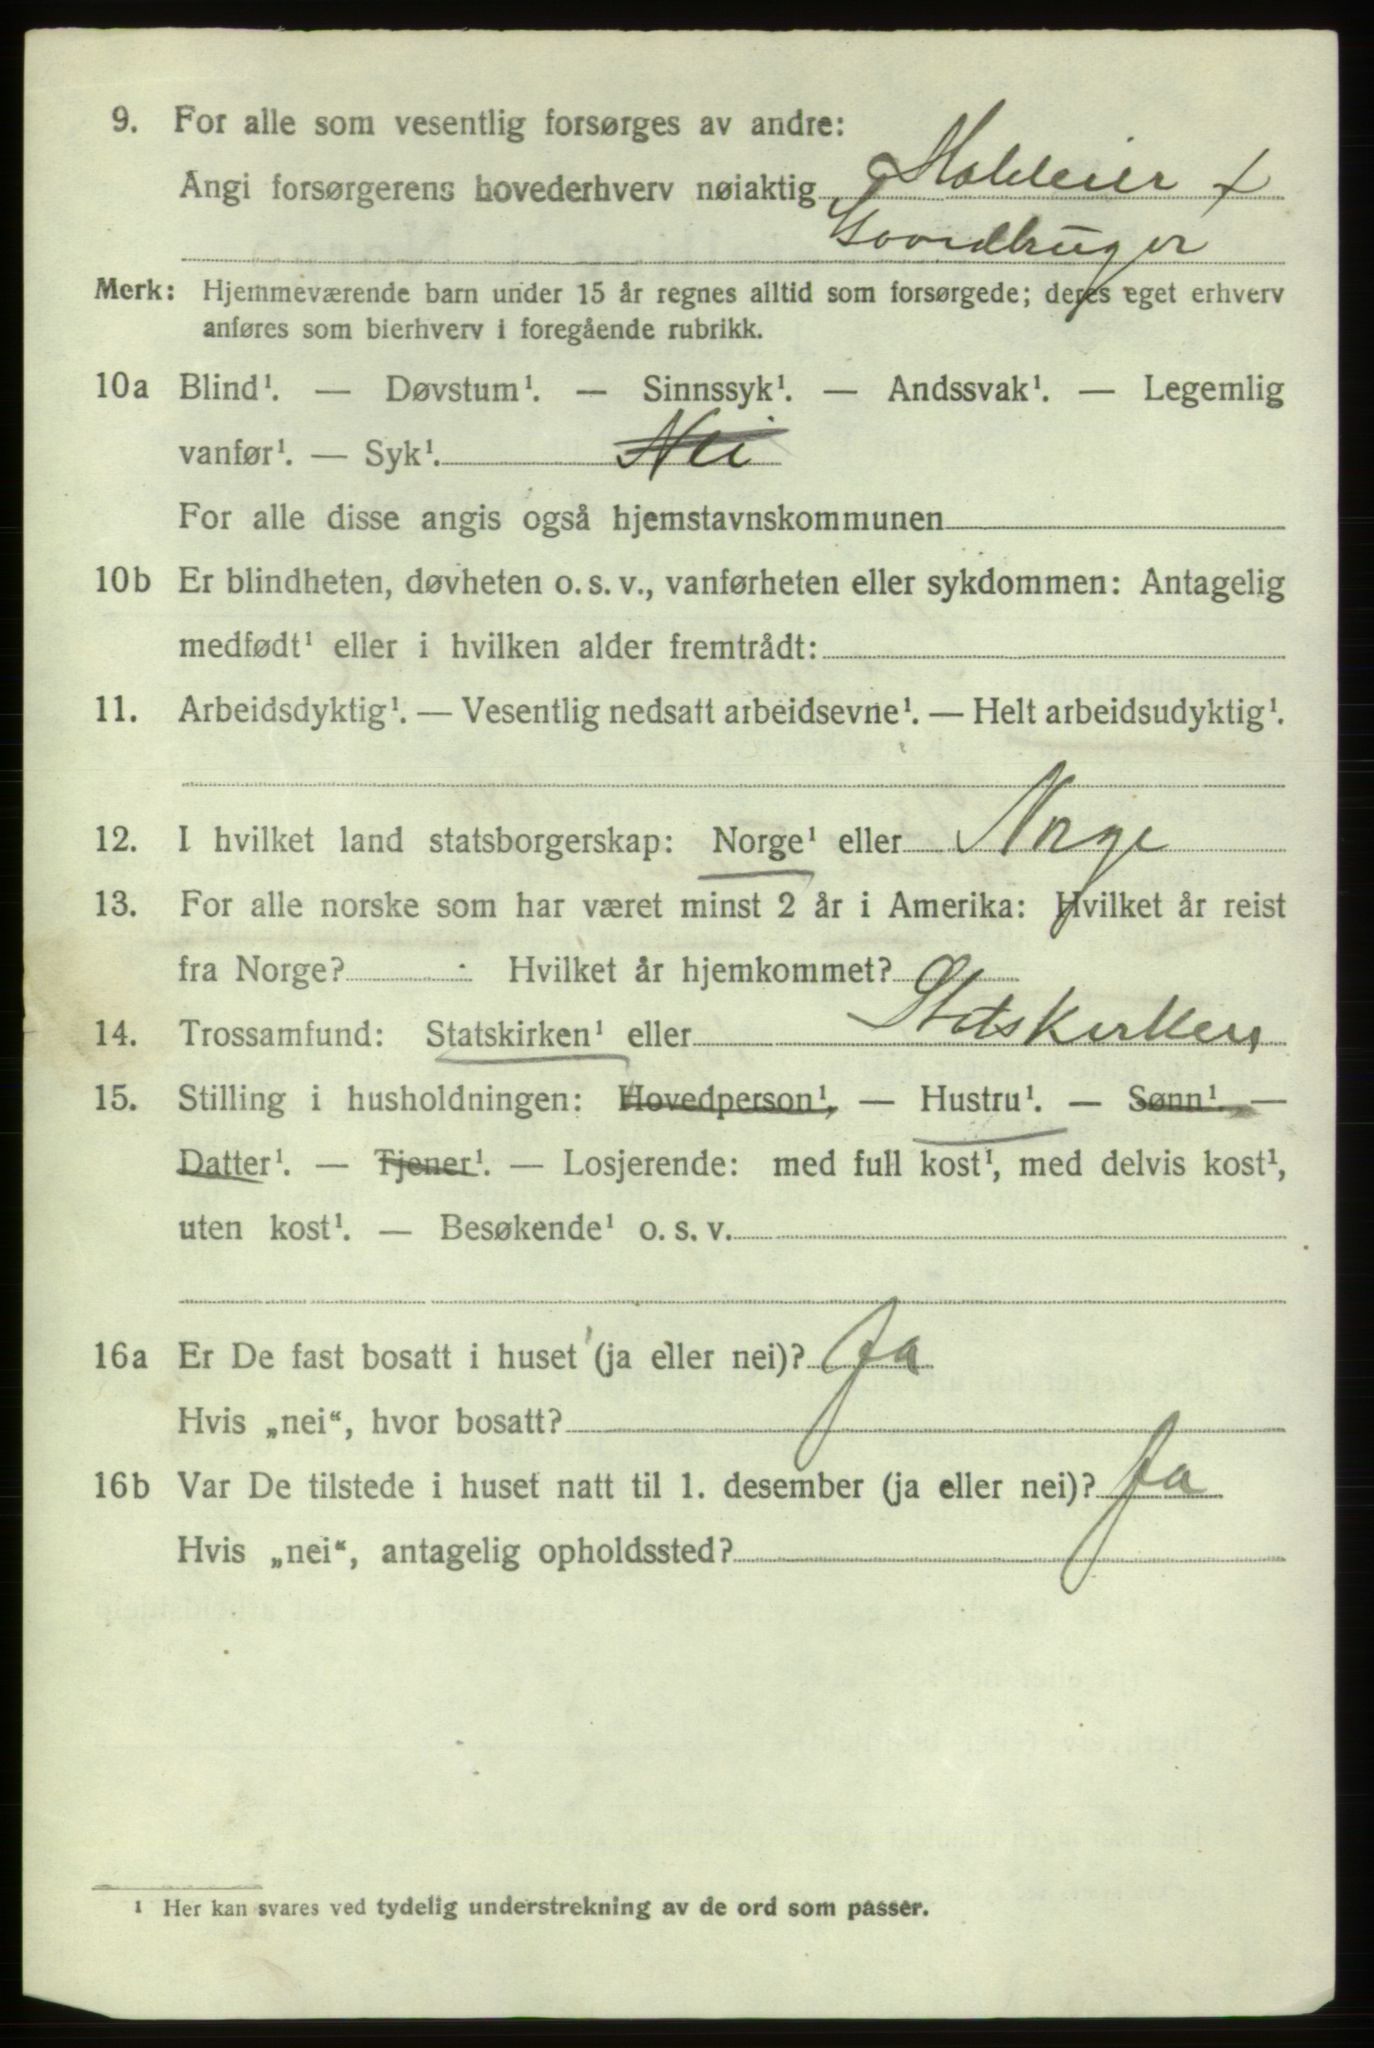 9. For alle som vesentlig forsørges av andre:
Angi forsørgerens hovederhverv nøiaktig
Merk: Hjemmeværende barn under 15 år regnes alltid som forsørgede; deres eget erhverv
anføres som bierhverv i foregående rubrikk.
10a Blind¹. — Døvstum¹. — Sinnssyk¹. — Andssvak¹. — Legemlig
vanfør¹. — Syk¹. Nei
For alle disse angis også hjemstavnskommunen
10b Er blindheten, døvheten o. s. v., vanførheten eller sykdommen: Antagelig
medfødt¹ eller i hvilken alder fremtrådt:
11. Arbeidsdyktig¹. — Vesentlig nedsatt arbeidsevne¹. — Helt arbeidsudyktig¹.
12. I hvilket land statsborgerskap: Norge¹ eller Norge
13. For alle norske som har været minst 2 år i Amerika: Hvilket år reist
fra Norge? Hvilket år hjemkommet?
14. Trossamfund: Statskirken¹ eller Statskirken
15. Stilling i husholdningen: Hovedperson¹, — Hustru¹. — Sønn¹. —
Datter¹. — Tjener¹. — Losjerende: med full kost¹, med delvis kost¹,
uten kost¹. — Besøkende¹ o. s. v.
16a Er De fast bosatt i huset (ja eller nei)? Ja
Hvis „nei“, hvor bosatt?
16b Var De tilstede i huset natt til 1. desember (ja eller nei)? Ja
Hvis „nei“, antagelig opholdssted?
¹ Her kan svares ved tydelig understrekning av de ord som passer.